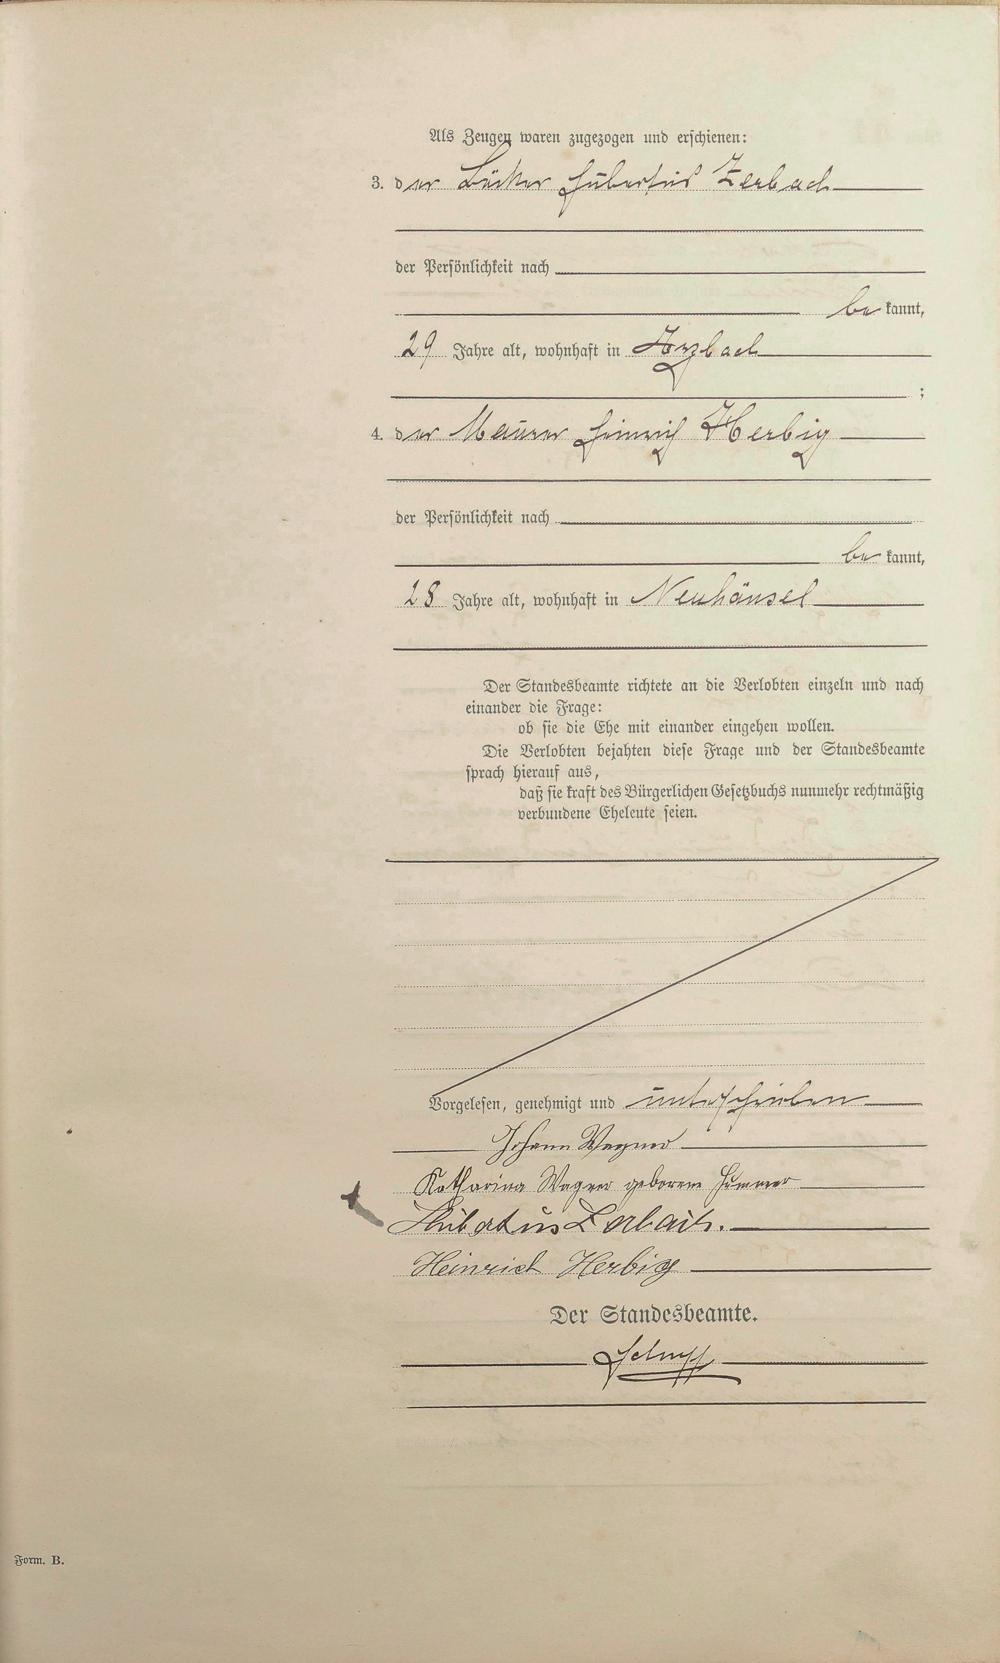 Als Zeugen waren zugezogen und erschienen:
3. der Bäcker Hubertus Zerbach
der Persönlichkeit nach
be kannt,
29 Jahre alt, wohnhaft in Arzbach
;
4. der Maurer Heinrich Herbig
der Persönlichkeit nach
be kannt,
28 Jahre alt, wohnhaft in Neuhäusel
Der Standesbeamte richtete an die Verlobten einzeln und nach
einander die Frage:
ob sie die Ehe mit einander eingehen wollen.
Die Verlobten bejahten diese Frage und der Standesbeamte
sprach hierauf aus,
daß sie kraft des Bürgerlichen Gesetzbuchs nunmehr rechtmäßig
verbundene Eheleute seien.
Vorgelesen, genehmigt und unterschrieben
Johann Wagner
Katharina Wagner geborene
Hubertus Zerbach.
Heinrich Herbig
Der Standesbeamte.
Form. B.